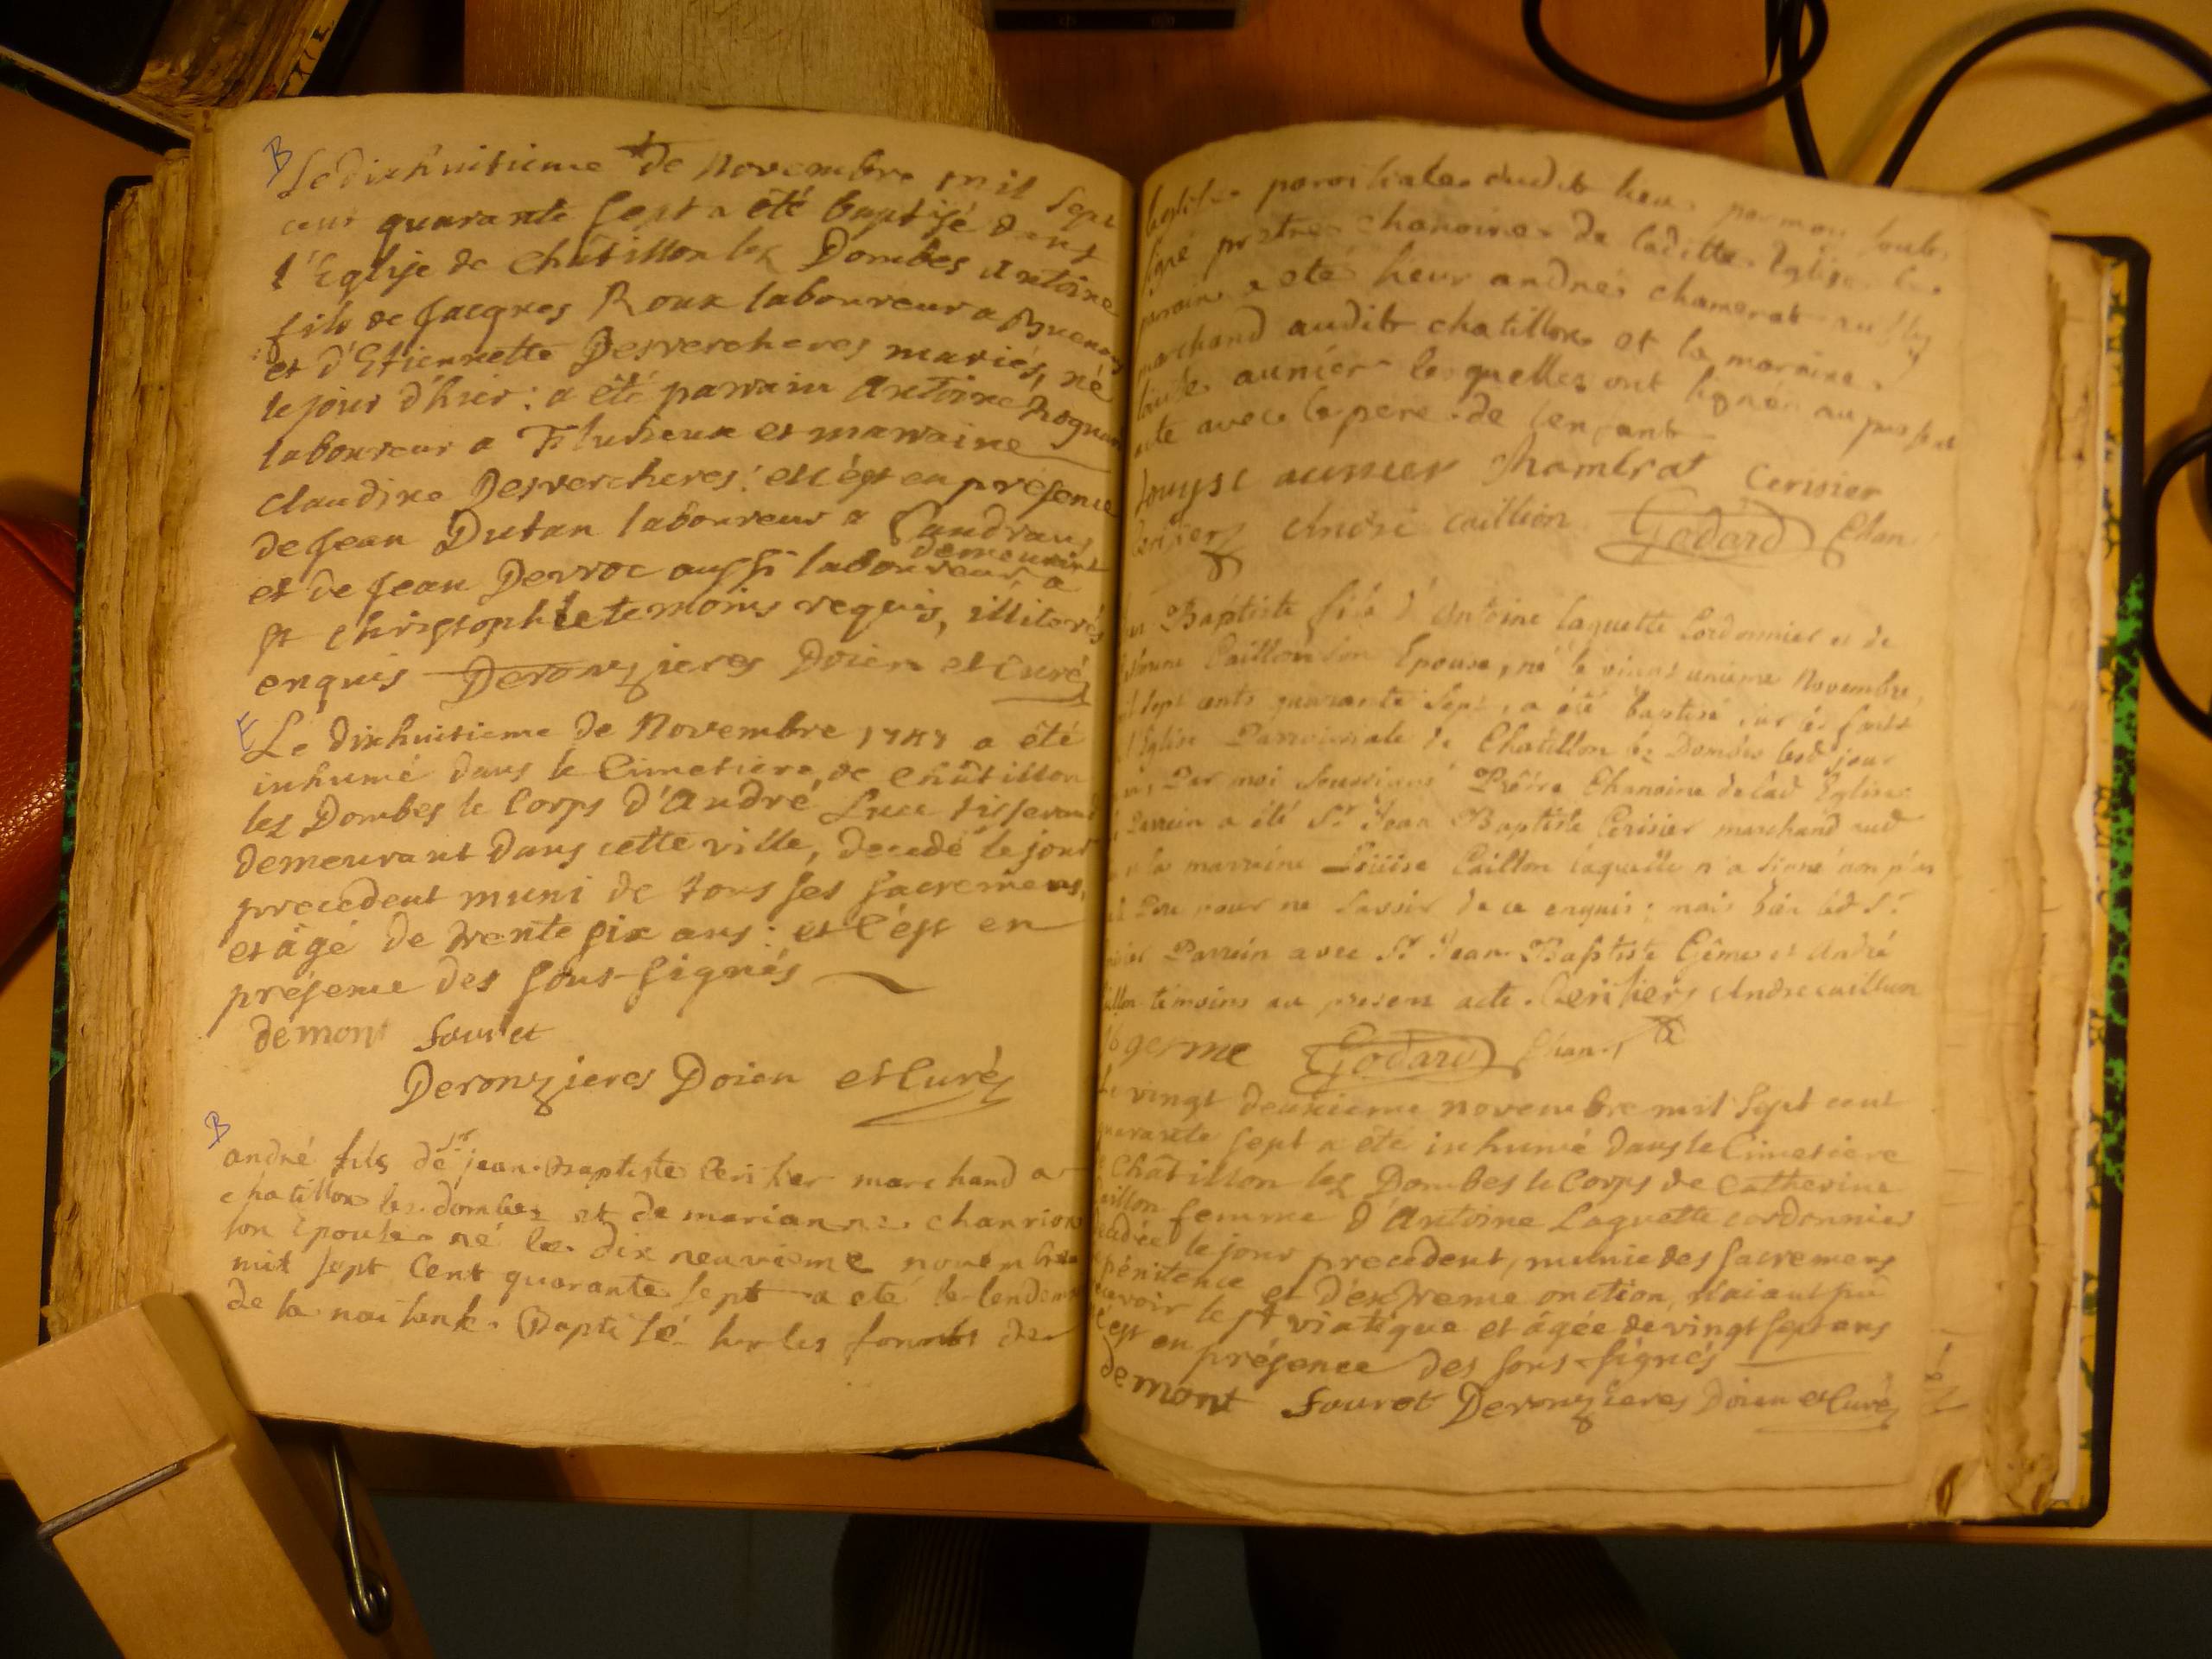 B
Le dixhuitieme de Novembre mil sept
cent quarante sept a été baptisé dans
l'Eglise de Châtillon lez Dombes Antoine
fils de Jacques Roux laboureur a
et d'Etiennette Desvercheres mariés, né
le jour d'hier : a été parrain Antoine
laboureur a Flurieux et marraine
Claudine Desvercheres : et c'est en présence
de Jean Dutan laboureur a Sandrans
demeurant
et de Jean Derroc aussi laboureur a
St Christophle temoins requis, illiterés
enquis Deronzieres Doien et Curé
E
Le dixhuitieme de Novembre 1747 a été
inhumé dans le Cimetiere de Châtillon
lez Dombes le Corps d'André Luc tisserand
demeurant dans cette ville, decedé le jour
precedent muni de tous ses sacremens,
et âgé de trente six ans : et c'est en
présence des sous-signés
demont fouret
Deronzieres Doien et Curé
B
andré fils de Sr jean-Baptiste Cerisier marchand a
chatillon les dombes et de marianne chanrion
son Epouse né le dix neuvieme novembre
mil sept Cent quarante sept a eté le lendemain
de sa naissance Baptisé sur les fonts de
paroissiale dudit lieu par moy sous
signé prêtre chanoine de laditte Eglise le
parain a eté sieur andré chamerat aussy
marchand audit chatillon et la maraine
aunier lesquelles ont signés au present
acte avec le pere de lenfant
Louyse aunier Chambrat Cerisier
Cerisier André caillion Godard Chan
Baptiste fils d'Antoine laquette Cordonnier et de
Caillon son Epouse, né le vingt unieme Novembre
mil sept cents quarante sept, a été baptisé sur les fonts
d'Eglise Parroissiale de Chatillon lez Dombes lesd jour
an, Par moi soussigné Prêtre Chanoine de lad Eglise
Parrein a été Sr Jean Baptiste Cerisier marchand aud
la marraine Loüise Caillon laquelle n'a signé non plus
Pere pour ne savoir de ce enquis ; mais bien led Sr
Parrein avec Sr Jean-Baptiste Gême et André
Caillon témoins au present acte. Cerisiers Andre caillion
germe Godard Chan.
Le vingt deuxieme novembre mil sept cent
quarante sept a été inhumé dans le Cimetiere
Châtillon lez Dombes le Corps de Catherine
Caillon femme d'Antoine Laquette cordonnier
decedée le jour precedent, munie des sacremens
penitence et d'extreme onction, n'aiant pu
recevoir le st viatique et âgée de vingt sept ans
est en présence des sous-signés
demont fouret Deronzieres Doien et Curé